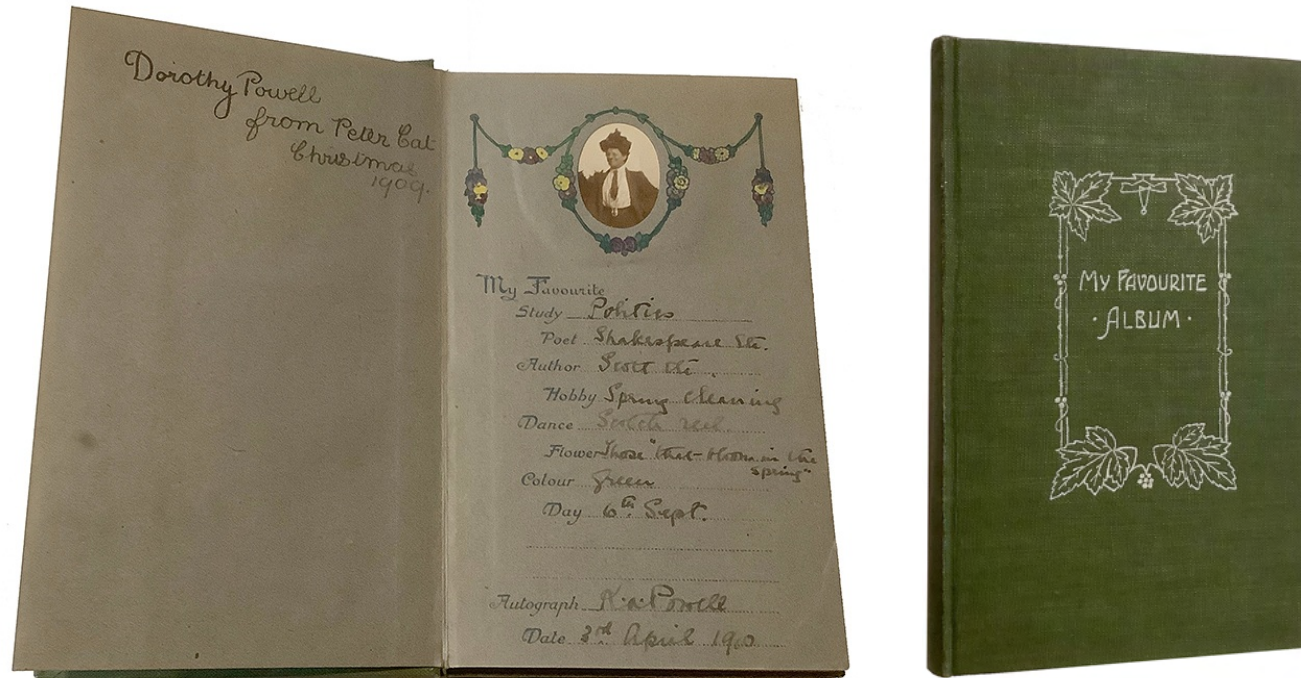 Dorothy Powell
from Peter Cat
Christmas
1909.
My Favourite
Study Politics
Poet Shakespeare Etc.
Author Scott Etc.
Hobby Spring Cleaning
Dance Scotch reel
Flower Those "that bloom in the
spring"
Colour Green
Day 6th Sept.
Autograph K.a. Powell
Date 3rd April 1910
MY FAVOURITE
· ALBUM ·